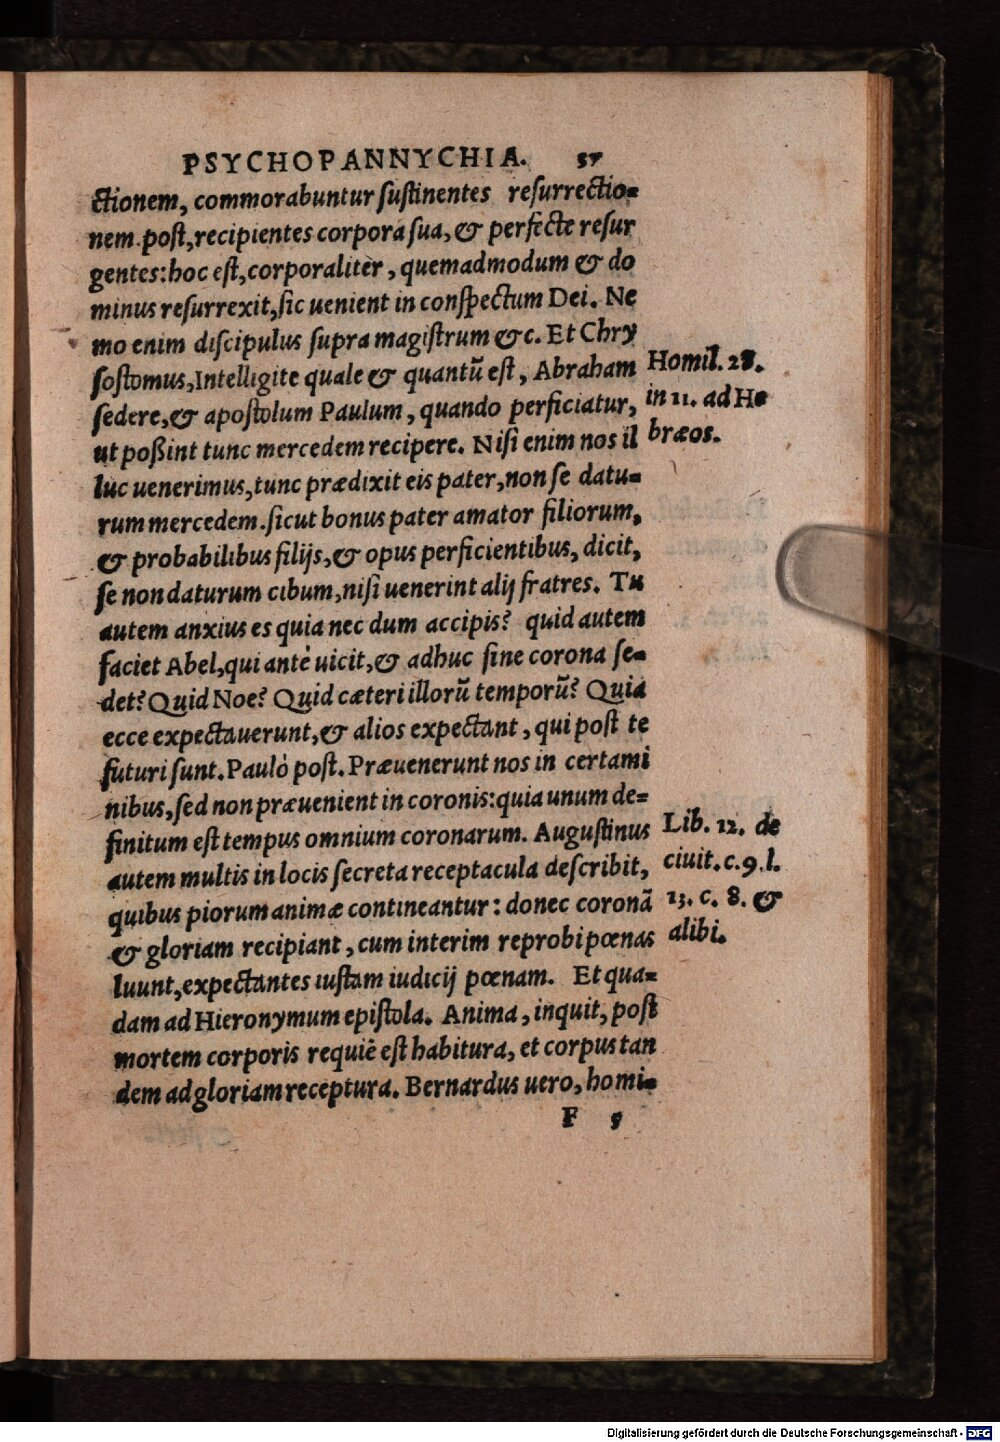 PSYCHOPANNYCHIA. 57
ctionem, commorabuntur sustinentes resurrectio-
nem.post,recipientes corpora sua,& perfecte resur
gentes:hoc est,corporaliter, quemadmodum & do
minus resurrexit,sic uenient in conspectum Dei. Ne
mo enim discipulus supra magistrum &c. Et Chry
sostomus,Intelligite quale & quantũ est, Abraham
sedere,& apostolum Paulum, quando perficiatur,
ut possint tunc mercedem recipere. Nisi enim nos il
luc uenerimus,tunc prædixit eis pater,non se datu-
rum mercedem.sicut bonus pater amator filiorum,
& probabilibus filijs,& opus perficientibus, dicit,
se non daturum cibum,nisi uenerint alij fratres. Tu
autem anxius es quia nec dum accipis? quid autem
faciet Abel,qui antè uicit,& adhuc sine corona se-
det? Quid Noe? Quid cæteri illorũ temporũ? Quia
ecce expectauerunt,& alios expectant, qui post te
futuri sunt. Paulò post. Præuenerunt nos in certami
nibus,sed non præuenient in coronis:quia unum de-
finitum est tempus omnium coronarum. Augustinus
autem multis in locis secreta receptacula describit,
quibus piorum animæ contineantur: donec coronã
& gloriam recipiant, cum interim reprobi pœnas
luunt,expectantes iustam iudicij pœnam. Et qua-
dam ad Hieronymum epistola. Anima, inquit, post
mortem corporis requiẽ est habitura, et corpus tan
dem ad gloriam receptura. Bernardus uero, homi-
F 5
Homil. 28.
in 11. ad He
bræos.
Lib. 12. de
ciuit.c.9.l.
13. c. 8. &
alibi.
Digitalisierung gefördert durch die Deutsche Forschungsgemeinschaft - DFG